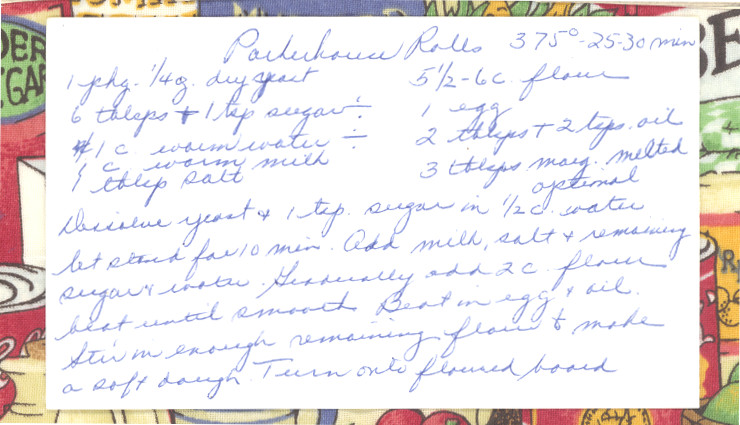 Parkerhouse Rolls 375°-25-30 min
1 pkg. 1/4 oz. dry yeast
6 tblsps + 1 tsp sugar ÷
1 c. warm water ÷
1 c. warm milk
1 tblsp salt
5 1/2-6 c. flour
1 egg
2 tblsps + 2 tsps. oil
3 tblsps marg. melted
optional
Dissolve yeast + 1 tsp. sugar in 1/2 c. water
let stand for 10 min. Add milk, salt + remaining
sugar + water. Gradually add 2 c. flour
beat until smooth. Beat in egg + oil.
Stir in enough remaining flour to make
a soft dough. Turn onto floured board